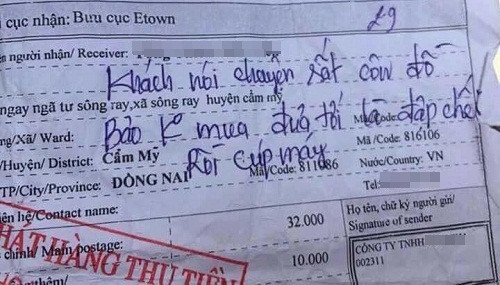 i cục nhận: Bưu cục Etown
29
ên người nhận/ Receiver:
Khách nói chuyện rất côn đồ
ngay ngã tư sông ray,xã sông ray huyện cẩm mỹ
Bảo k mua đưa tới là đập chết
ng/Xã/ Ward: Mã/Code:
/Huyện/ District: Cẩm Mỹ Mã /Code: 816106
Rồi cúp máy
TP/City/Province: ĐỒNG NAI Mã/Code: 811086 Nước/Country: VN
Tel:
ên hệ/Contact name: 32.000 Họ tên, chữ ký người gửi/
Signature of sender
PHÁT HÀNG THU TIỀN
chính/ Main postage: 10.000 CÔNG TY TNHH
002311
thêm/